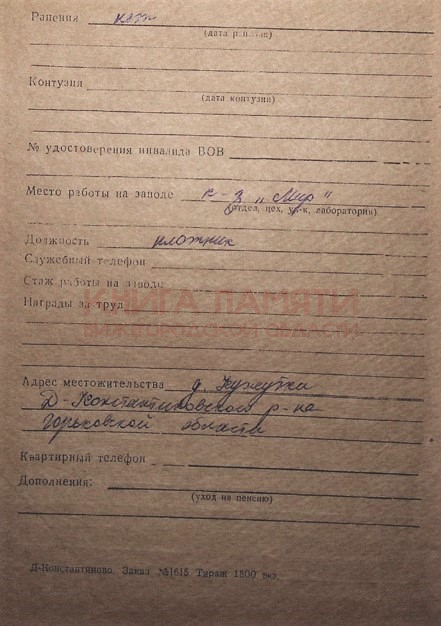 Ранения нет
(дата ранения)
Контузия
(дата контузии)
№ удостоверения инвалида ВОВ
Место работы на заводе к-з „Мир"
(отдел, цех, уч-к, лаборатория)
Должность плотник
Служебный телефон
Стаж работы на заводе
Награды за труд
КНИГА ПАМЯТИ
НИЖЕГОРОДСКОЙ ОБЛАСТИ
Адрес местожительства д. Кужутки
Д-Константиновского р-на
Горьковской области
Квартирный телефон
Дополнения:
(уход на пенсию)
Д-Константиново. Заказ №1615 Тираж 1500 экз.